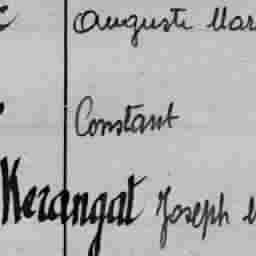 Auguste Mar
Constant
Kerangat Joseph